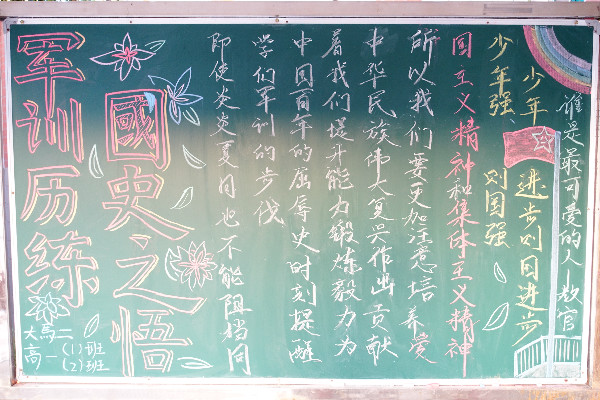 军训历练
國史之悟
大馬二
高一(1)班
(2)班
即使炎炎夏日也不能阻挡同
学们军训的步伐
中国百年的屈辱史时刻提醒
着我们提升能力锻炼毅力为
中华民族伟大复兴作出贡献
所以我们要更加注意培养爱
国主义精神和集体主义精神
少年强则国强
少年进步则国进步
谁是最可愛的人—教官